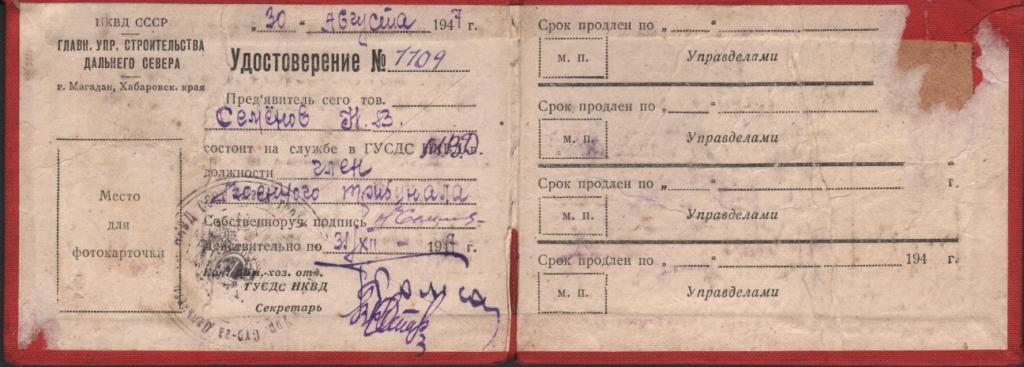 НКВД СССР
ГЛАВН. УПР. СТРОИТЕЛЬСТВА
ДАЛЬНЕГО СЕВЕРА
г. Магадан, Хабаровск. края
Место
для
фотокарточки
„30“ Августа 1947 г.
Удостоверение № 1109
Пред'явитель сего тов.
Семёнов Н. В.
состоит на службе в ГУСДС НКВД в МВД
должности член
Военного трибунала
Собственноруч. подпись
Действительно по 31/XII – 1947 г.
хоз. отд.
ГУСДС НКВД
Секретарь
Срок продлен по „ “ г.
м. п. Управделами
Срок продлен по „ “
м. п. Управделами
Срок продлен по „ “ г.
м. п. Управделами
Срок продлен по „ “ 194 г.
м. п. Управделами